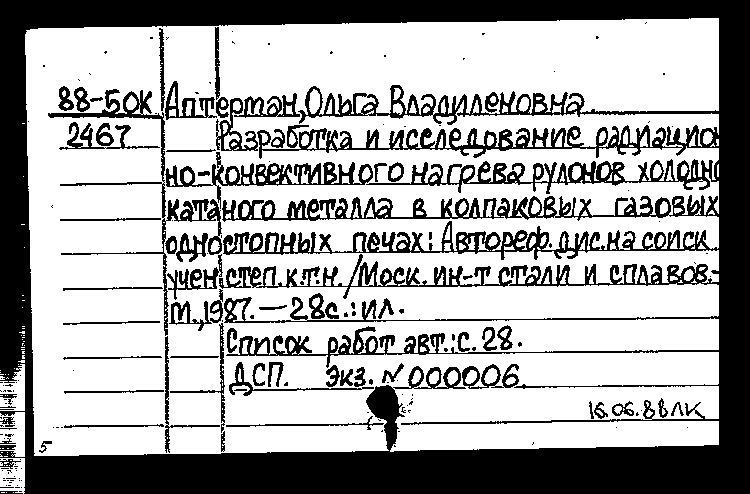 88-50К Аптерман, Ольга Владиленовна.
2467 Разработка и исследование радиацион
но-конвективного нагрева рулонов холодно
катаного металла в колпаковых газовых
одностопных печах: Автореф. дис. на соиск.
учен. степ. к.т.н. /Моск. ин-т стали и сплавов.-
М., 1987. — 28с.: ил.
Список работ авт.: с. 28.
ДСП. Экз. № 000006.
16.06.88 ЛК
5